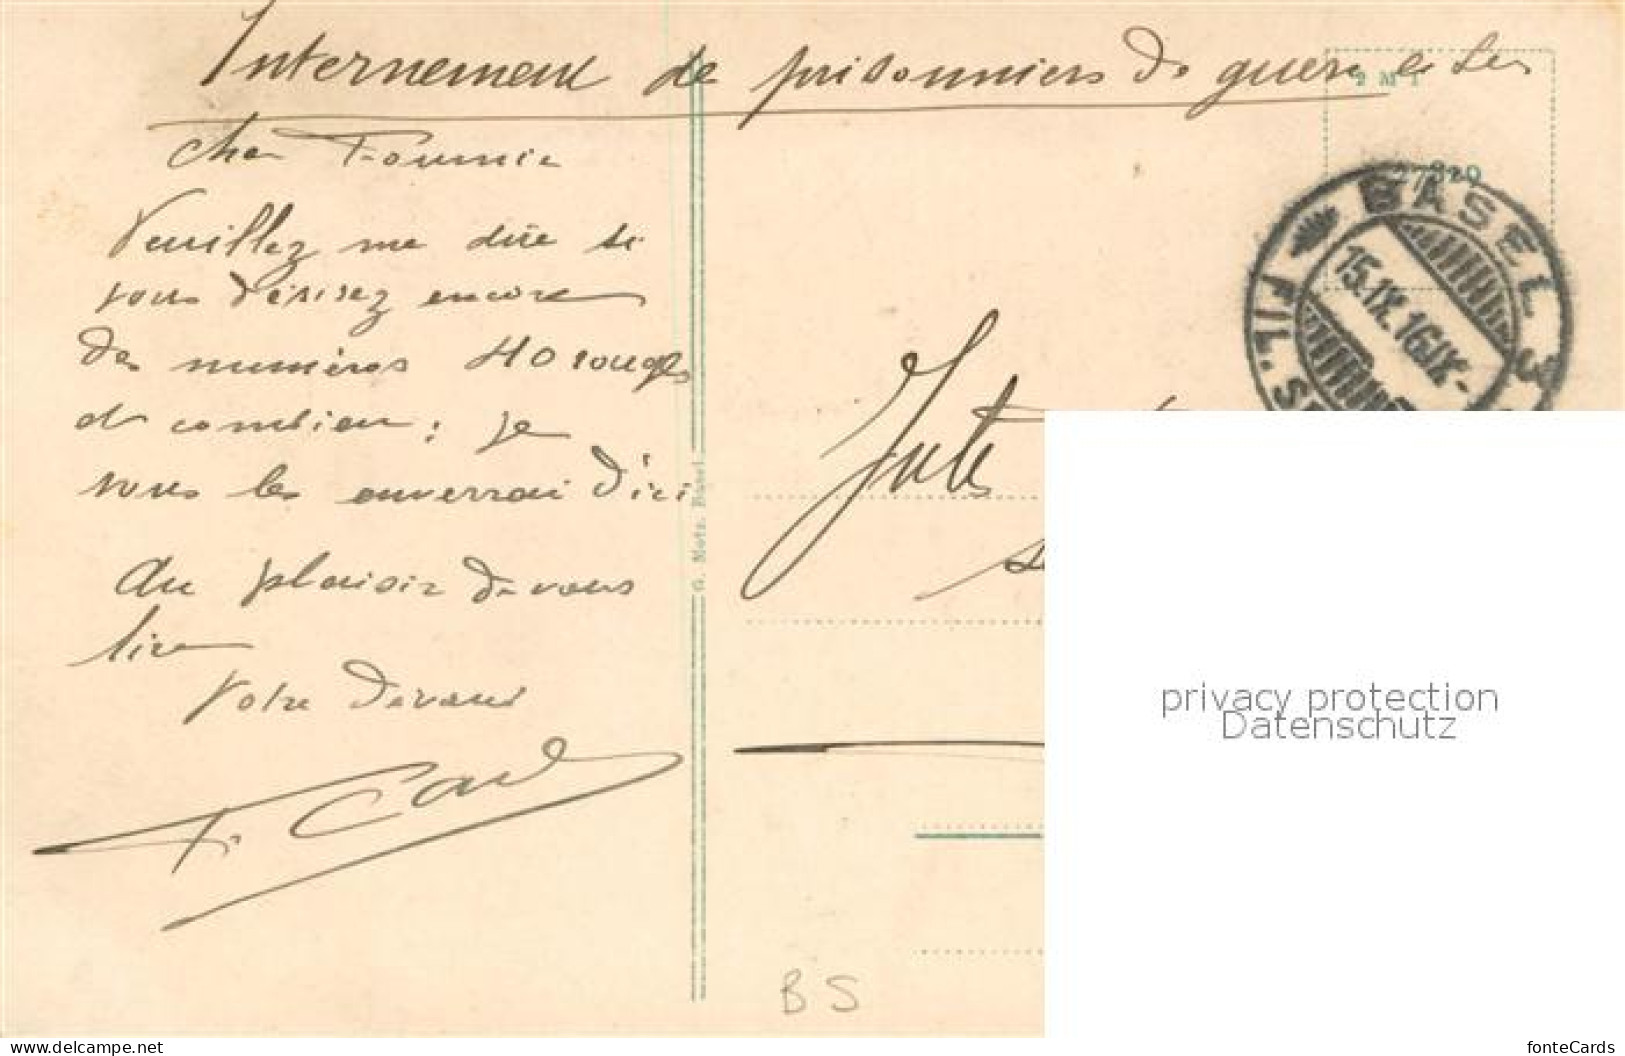 Internement de prisonniers de guerre
2 M 1
27820
BASEL 3
FIL. S
15.IX.16.IX-
Cher Fournie
Veuillez me dire si
vous désirez encore
des numéros 40 rouges
et combien : je
vous les enverrai d'ici
Au plaisir de vous
lire
Votre dévoué
F. Card
G. Metz, Basel
Jules
B S
privacy protection
Datenschutz
www.delcampe.net
fonteCards